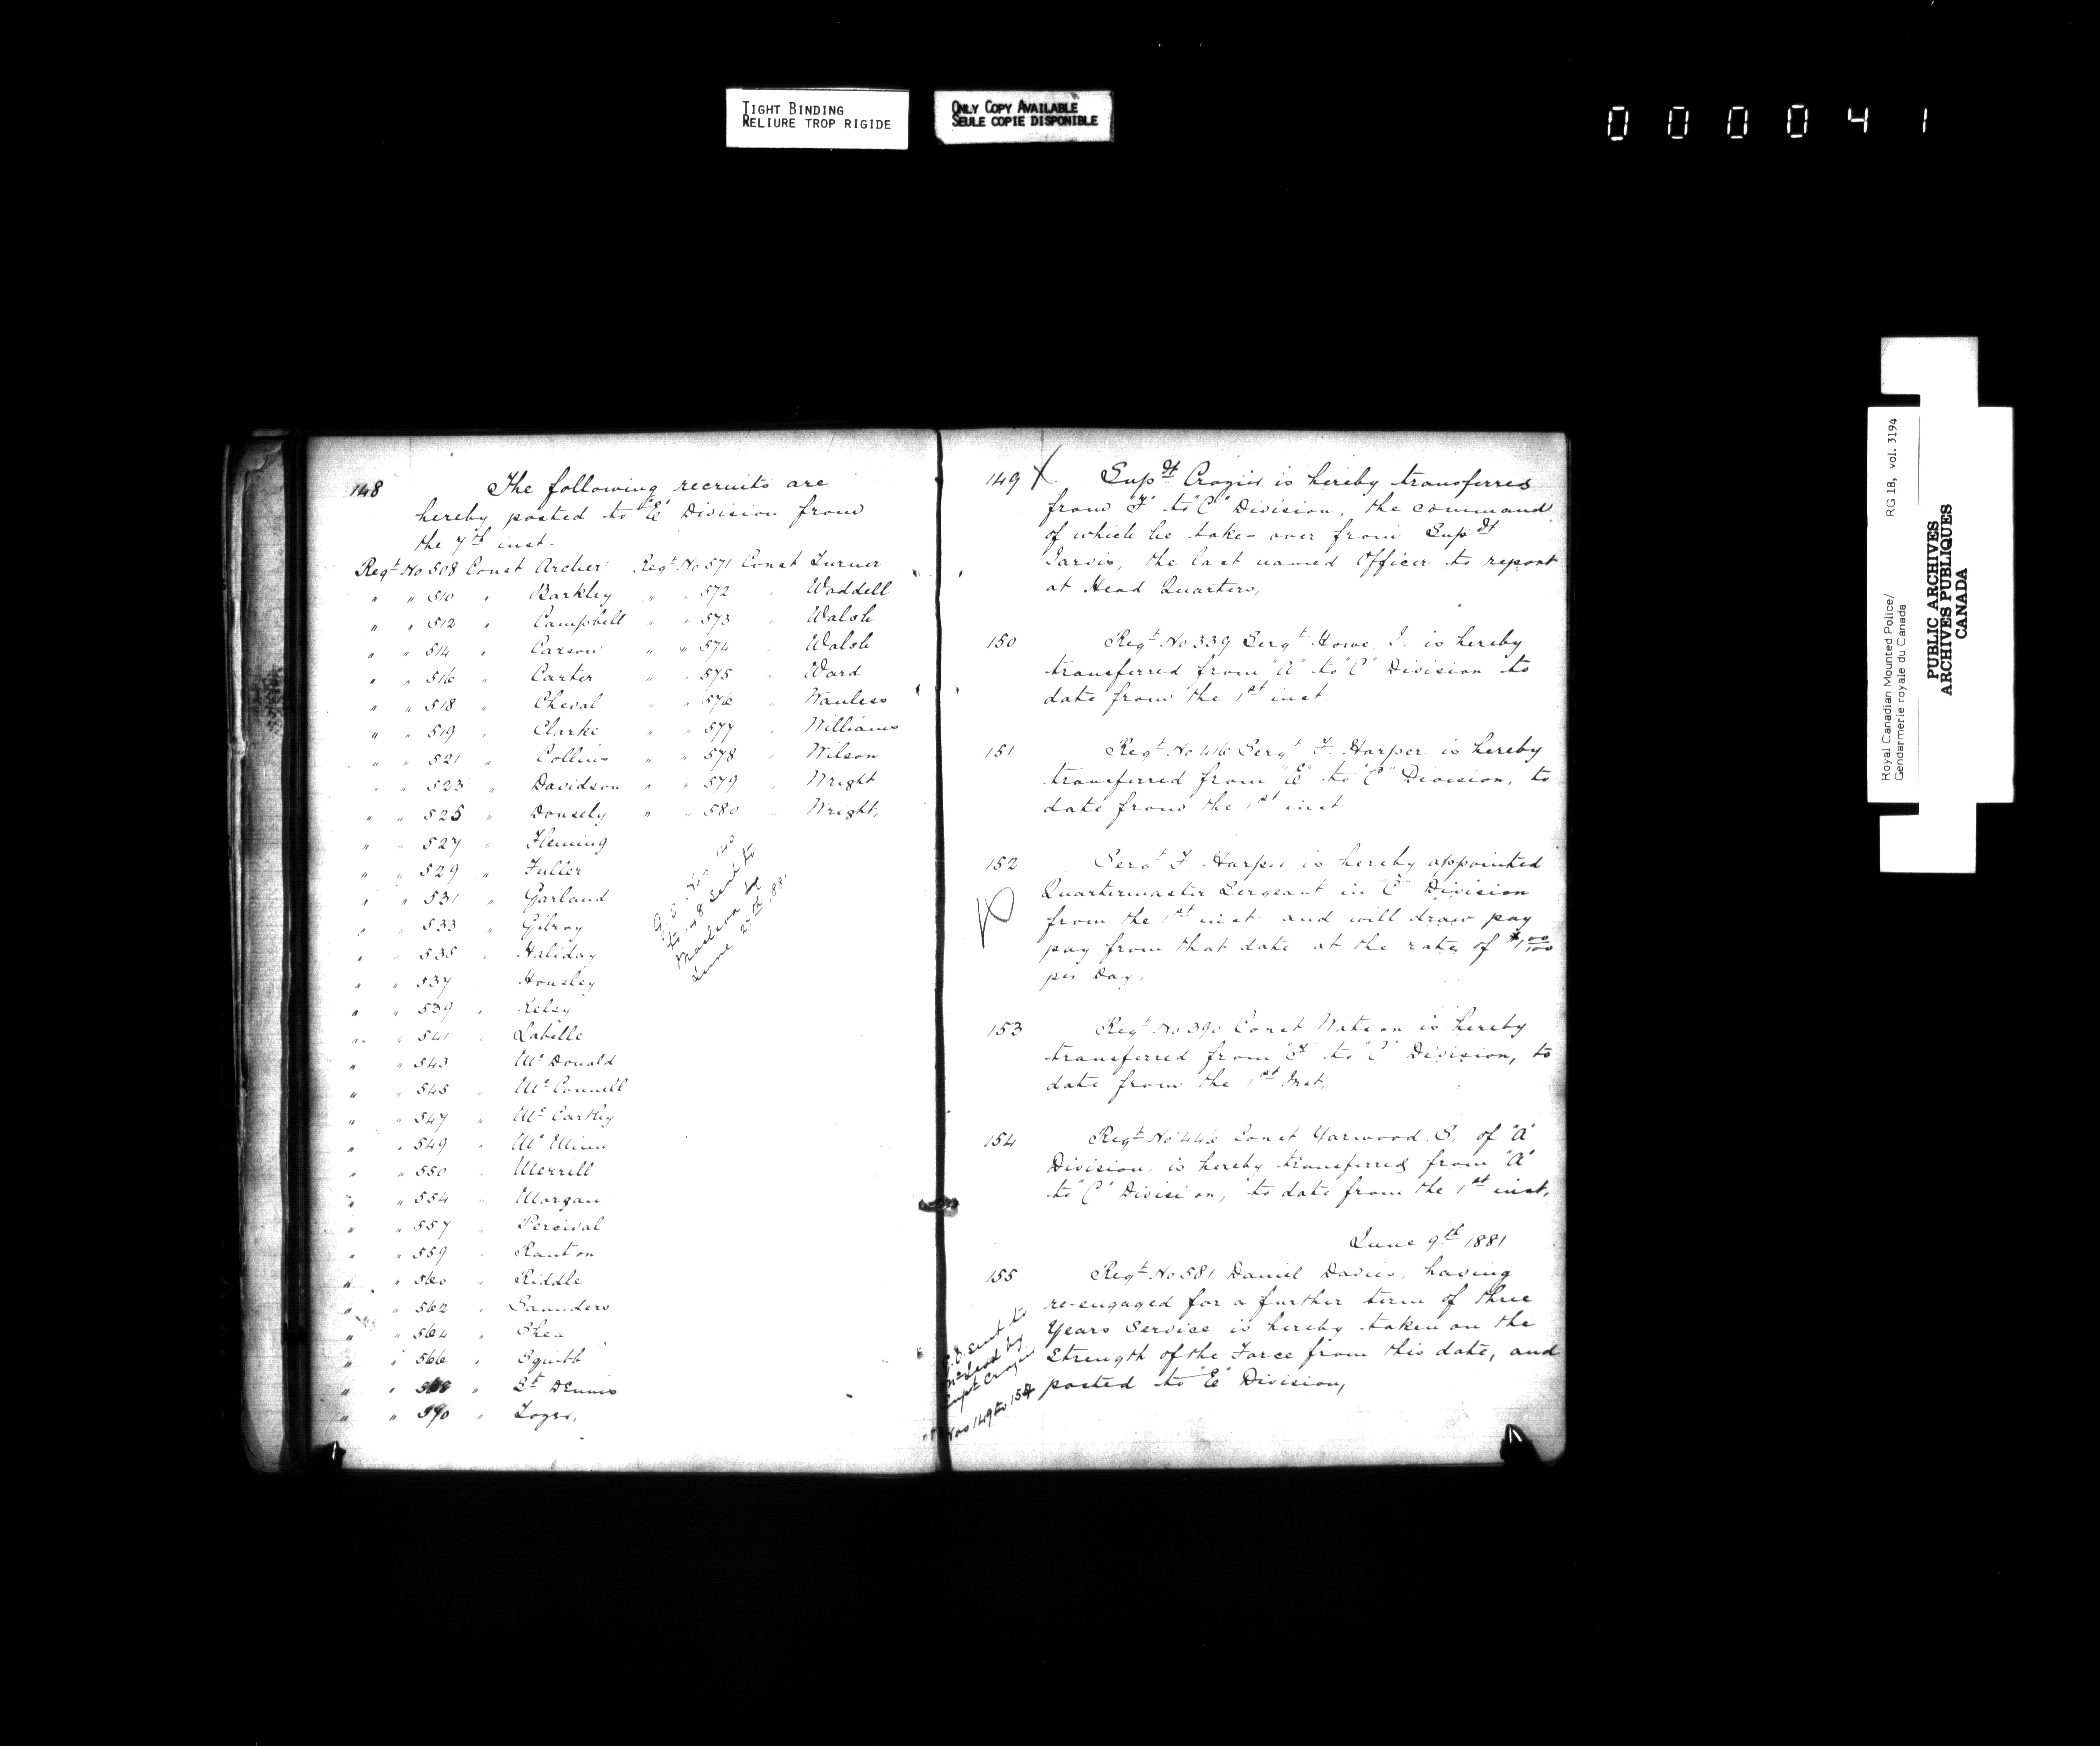 TIGHT BINDING
RELIURE TROP RIGIDE
ONLY COPY AVAILABLE
SEULE COPIE DISPONIBLE
000041
148 The following recruits are
hereby posted to "E" Division from
the 7th inst.
Regt No 508 Const Archer Regt No 571 Const Turner
" " 510 " Barkley " " 572 " Waddell
" " 512 " Campbell " " 573 " Walsh
" " 514 " Carson " " 574 " Walsh
" " 516 " Carter " " 575 " Ward
" " 518 " Cheval " " 576 " Wanless
" " 519 " Clarke " " 577 " Williams
" " 521 " Collins " " 578 " Wilson
" " 523 " Davidson " " 579 " Wright
" " 525 " Donsely " " 580 " Wright.
" " 527 " Fleming
" " 529 " Fuller
" " 531 " Garland
" " 533 " Gilroy
" " 535 " Haliday
" " 537 " Housley
" " 539 " Kelsy
" " 541 " Labelle
" " 543 " Mc Donald
" " 545 " Mc Connell
" " 547 " Mc Carthy
" " 549 "
" " 550 " Merrill
" " 554 " Morgan
" " 557 " Percival
" " 559 " Ranton
" " 560 " Riddle
" " 562 " Saunders
" " 564 " Shea
" " 566 " Squibb
" " " St Dennis
" " "
G.O. Nos 140
to 148 sent to
Macleod by
June 27th 1881
149 X Supdt Crozier is hereby transferred
from "F" to "C" Division, the command
of which he takes over from Supdt
Jarvis, the last named Officer to report
at Head Quarters.
150 Regt No 339 Sergt Howe. J. is hereby
transferred from "A" to "C" Division to
date from the 1st inst
151 Regt No 416 Sergt F. Harper is hereby
transferred from "E" to "C" Division, to
date from the 1st inst
152 Sergt F. Harper is hereby appointed
Quartermaster Sergeant in "C" Division
from the 1st inst and will draw pay
pay from that date at the rate of $1 00/100
per Day.
153 Regt No 390 Const Watson is hereby
transferred from "F" to "C" Division, to
date from the 1st Inst.
154 Regt No Const Yarwood. S. of "A"
Division, is hereby transferred from "A"
to "C" Division, to date from the 1st inst.
June 9th 1881
155 Regt No 581 Daniel Davies, having
re-engaged for a further term of three
Years Service is hereby taken on the
Strength of the Force from this date, and
posted to "E" Division,
G.O. sent to
McLeod by
Supt Crozier
Nos 149 to 154
Royal Canadian Mounted Police/
Gendarmerie royale du Canada
RG 18, vol. 3194
PUBLIC ARCHIVES
ARCHIVES PUBLIQUES
CANADA